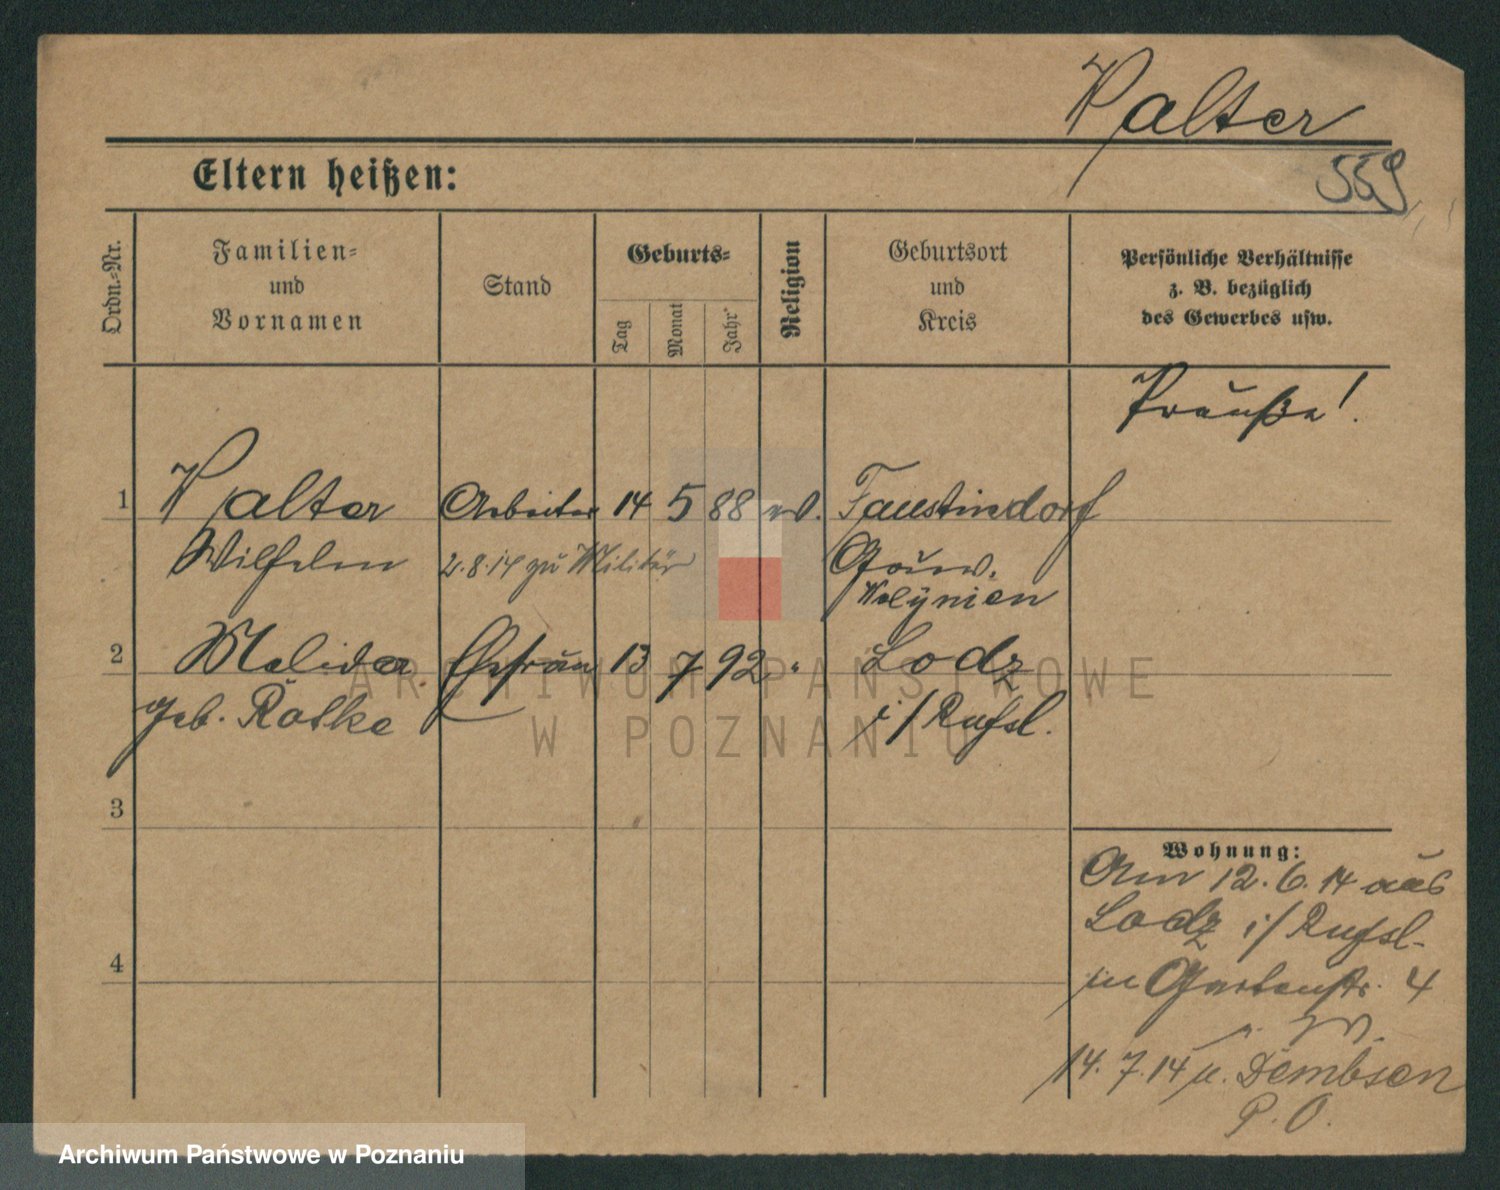 Walter
559
Eltern heißen:
Ordn.-Nr.
Familien-
und
Vornamen
Stand
Geburts-
Tag
Monat
Jahr
Religion
Geburtsort
und
Kreis
Persönliche Verhältnisse
z. B. bezüglich
des Gewerbes usw.
Preuße!
1 Walter Arbeiter 14 5 88 ev. Faustindorf
Wilhelm 2.8.14 zu Militär Gouv.
Wolynien
2 Melida Ehefrau 13 7 92 " Lodz
geb. Ratke i/Rußl.
3
4
Wohnung:
Am 12.6.14 aus
Lodz i/Rußl.
in Gartenstr. 4
14.7.14 n. Dembsen
P. O.
ARCHIWUM PAŃSTWOWE
W POZNANIU
Archiwum Państwowe w Poznaniu